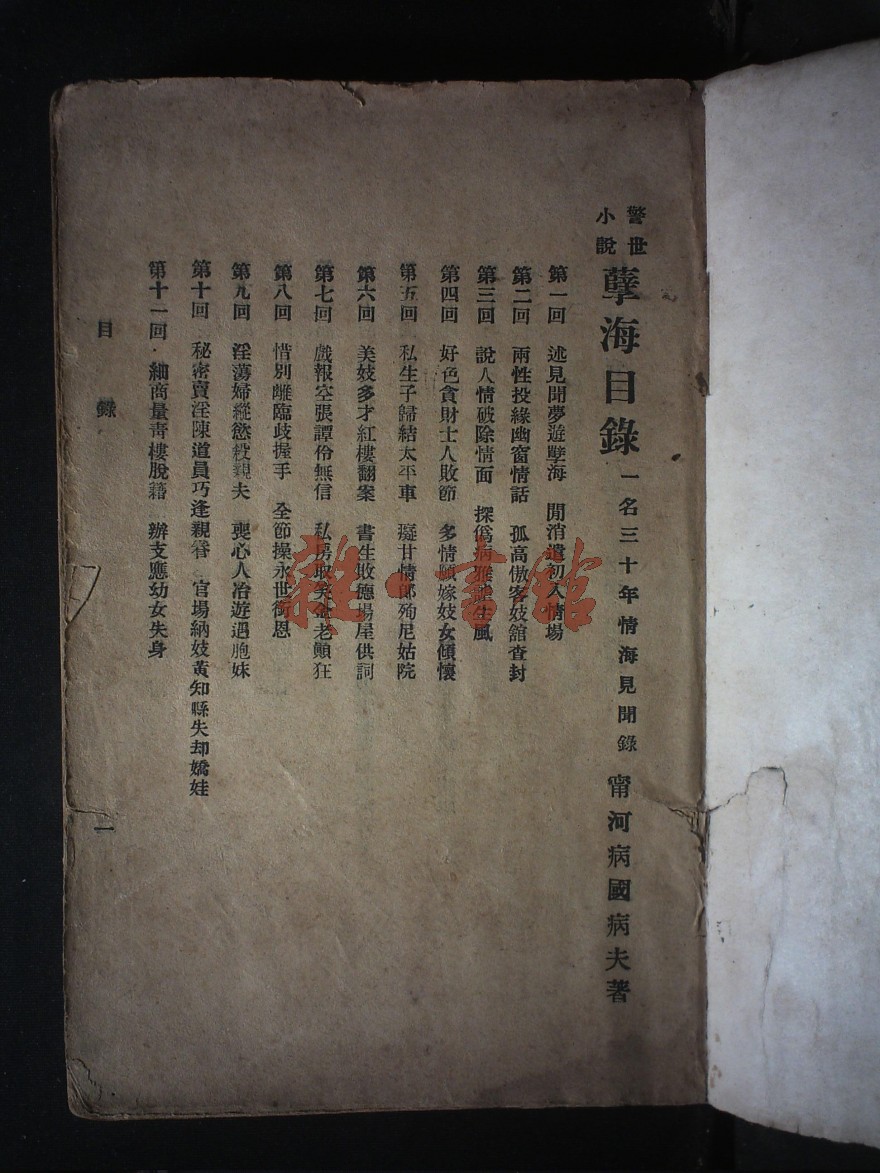 警世小說 孽海目錄 一名三十年情海見聞錄 甯河病國病夫著
第一回 述見聞夢遊孽海 閒消遣初入情場
第二回 兩性投緣幽窗情話 孤高傲客妓館查封
第三回 說人情破除情面 探僞病猴生風
第四回 好色貪財士人敗節 多情願嫁妓女傾懷
第五回 私生子歸結太平車 癡甘情郎殉尼姑院
第六回 美妓多才紅樓翻案 書生敗德場屋供詞
第七回 戲報空張譚伶無信 私房取笑金老顛狂
第八回 惜別離臨歧握手 全節操永世銜恩
第九回 淫蕩婦縱慾殺親夫 喪心人冶遊遇胞妹
第十回 秘密賣淫陳道員巧逢親眷 官場納妓黃知縣失却嬌娃
第十一回 細商量靑樓脫籍 辦支應幼女失身
目錄 一
雜·書館